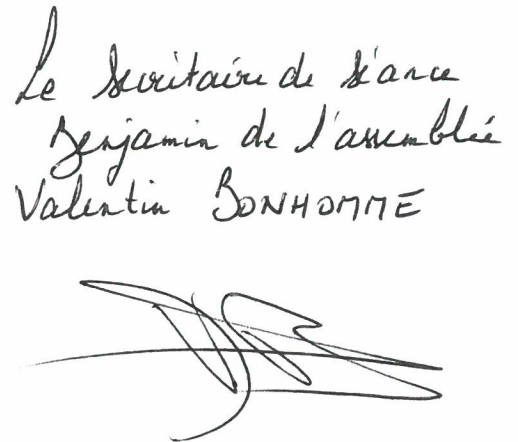 Le Secrétaire de séance
Benjamin de l'assemblée
Valentin BONHOMME